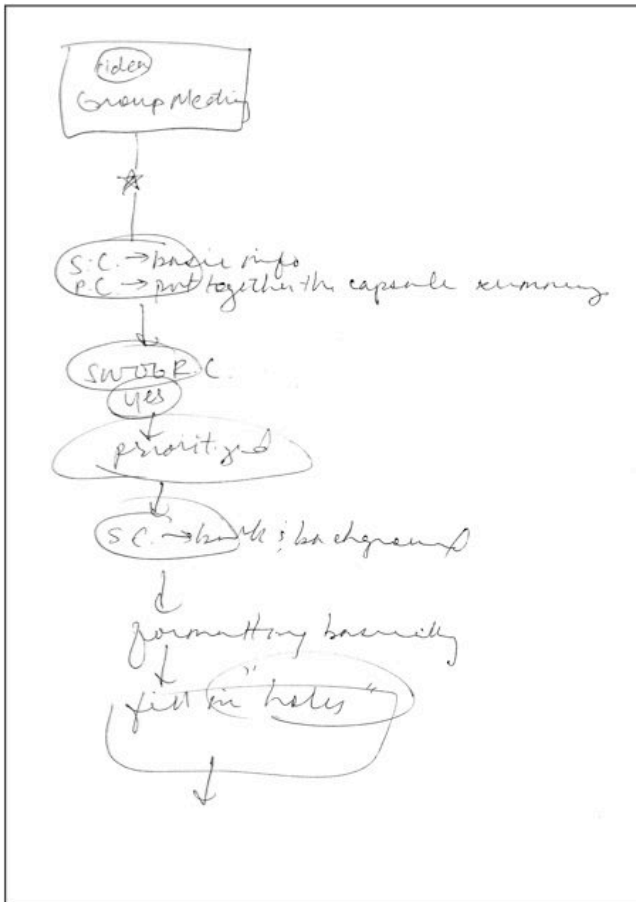 idea
Group Meeting
S.C. → basic info
P.C → put together the capsule summary
R.C.
yes
prioritized
S.C. → & background
formatting basically
fill in "holes"